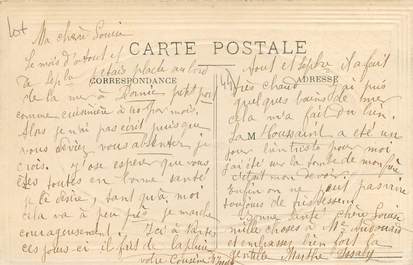 Ma chère Louise
CARTE POSTALE
le mois d'août et
de septe j'étais placé au bord
CORRESPONDANCE
de la mer à Pornic petit port
comme cuisinière à 40f par mois.
Alors je n'ai pas écrit puisque
vous deviez vous absenter je
crois. J'ose espérer que vous
êtes toutes en bonne santé
je le désire, tant qu'à moi
cela va à peu près je marche
courageusement. Ici à
ces jours-ci il fait de la pluie
votre Cousine
Août et Septbre il a fait
ADRESSE
très chaud. J'ai pris
quelques bains de mer
cela m'a fait du bien.
La Toussaint a été un
jour bien triste pour moi
j'ai été sur la tombe de mon père
c'était mon devoir.
Enfin on ne peut pas vivre
toujours
Bonne santé chère Louise
mille choses à Mr
et embrassez bien fort la
gentille Marthe